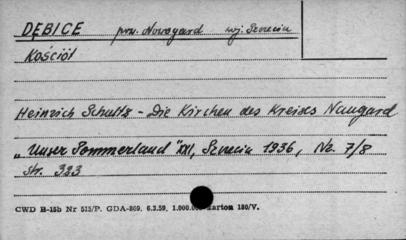 DĘBICE pow. Nowogard woj. Szczecin
Kościół
Heinrich Schultz - Die Kirchen des Kreises Naugard
"Unser Pommerland" XXI, Szczecin 1936, Nr. 7/8
str. 323
CWD B-15b Nr 515/P. GDA-809. 6.3.59. 1.000.0 karton 180/V.